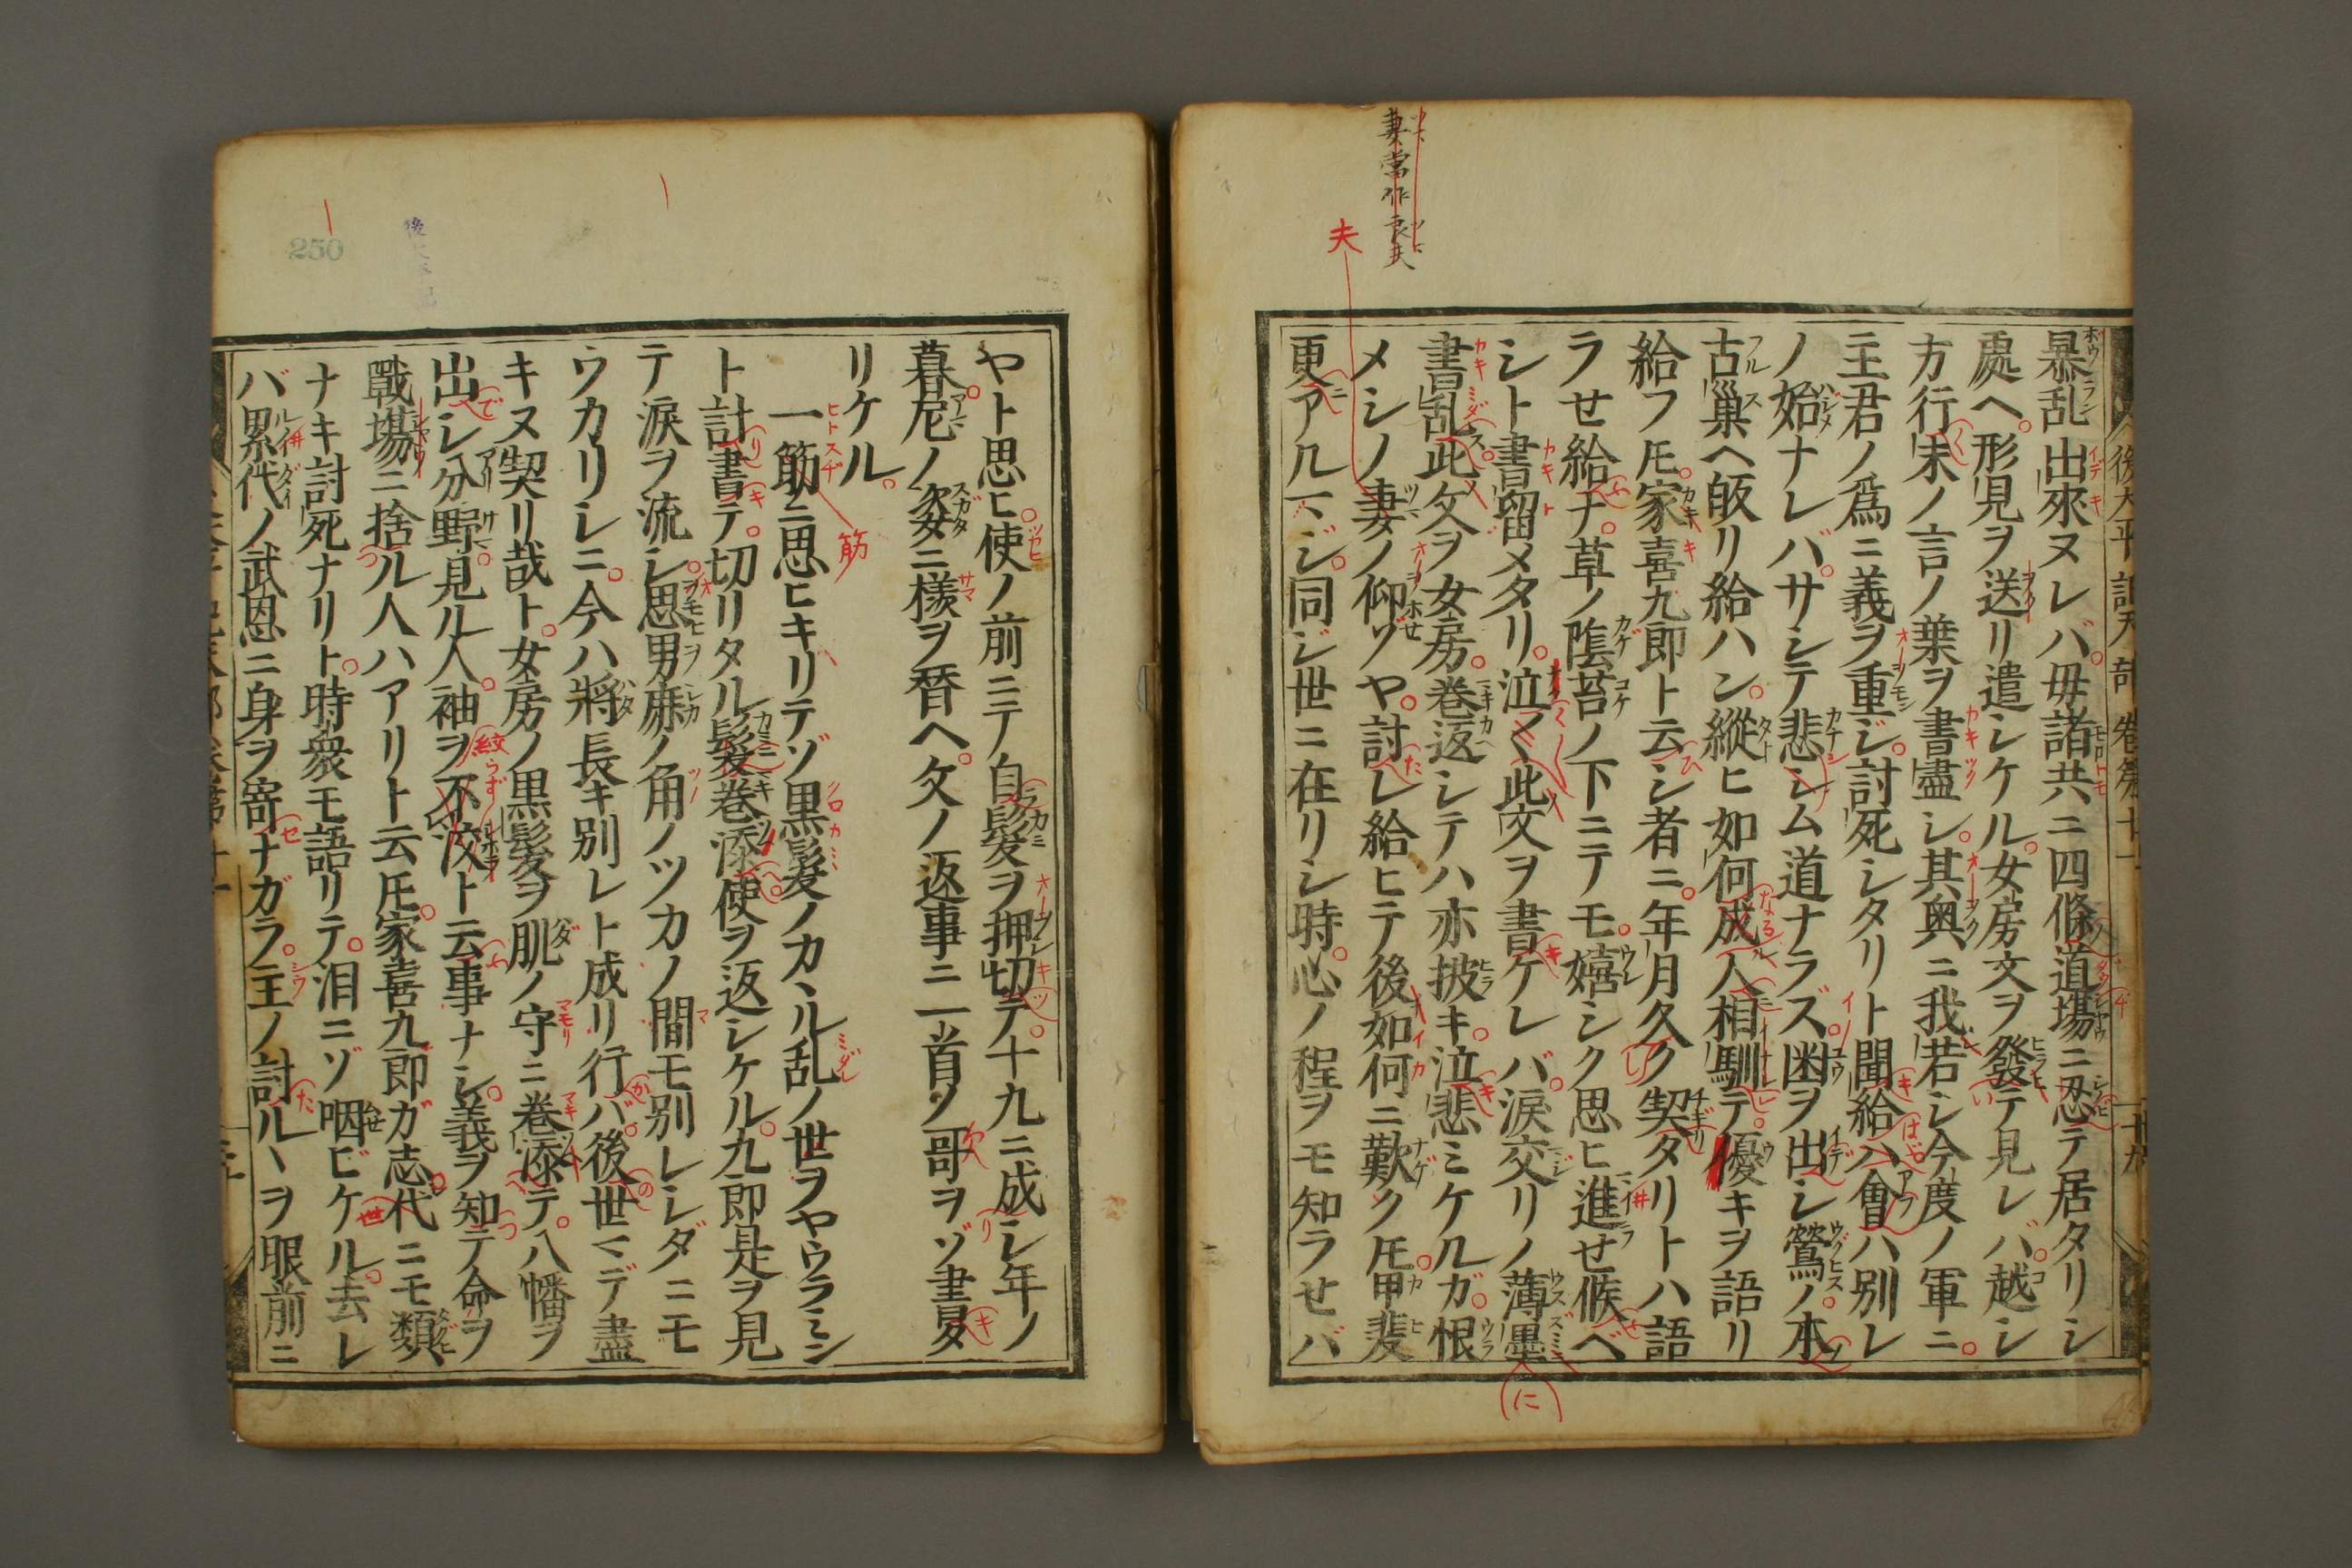 妻當作良夫
夫
後太平記天部卷第十一
暴乱出來ヌレバ。毋諸共ニ四條道場ニ忍テ居タリシ
處ヘ。形見ヲ送リ遣シケル。女房文ヲ發テ見レバ。越シ
方行末ノ言ノ葉ヲ書盡シ。其奥ニ我若シ今度ノ軍ニ。
主君ノ爲ニ義ヲ重ジ。討死シタリト聞給ハ會ハ別レ
ノ始ナレバ。サシテ悲シム道ナラズ。凼ヲ出シ鶯ノ。本
古巢ヘ皈リ給ハン。縱ヒ如何成人相馴テ。優キヲ語リ
給フ𪜈。家喜九郎ト云シ者ニ。年月久ク契タリトハ語
ラセ給ナ。草ノ陰苔ノ下ニテモ。嬉シク思ヒ進セ候ベ
シト書留メタリ。泣〱此文ヲ書ケレバ。涙交リノ薄墨
書乱ス。此文ヲ女房。卷返シテハ亦披キ。泣悲ミケルガ。恨
メシノ妻ノ仰ツヤ。討レ給ヒテ後如何ニ歎ク𪜈。甲斐
更アル𠆢ジ。同ジ世ニ在リシ時。心ノ程ヲモ知ラセバ
(に)
ヤト思ヒ。使ノ前ニテ自髮ヲ押切テ。十九ニ成シ年ノ
暮。尼ノ姿ニ樣ヲ替ヘ。文ノ返事ニ一首ノ哥ヲゾ書
リケル。
一筋ニ思ヒキリテゾ黒髮ノカヽル乱ノ世ヲヤウラミシ
筋
ト計書テ。切リタル髮卷添。使ヲ返シケル。九郎是ヲ見
テ涙ヲ流シ。思男麻ノ角ノツカノ間モ別レシダニモ
ウカリシニ。今ハ將長キ別レト成リ行バ。後世マデ盡
キヌ契リ哉ト。女房ノ黒髮ヲ肌ノ守ニ卷添テ。八幡ヲ
出シ分野。見ル人。袖ヲ不汥ト云事ナシ。義ヲ知テ命ヲ
戰塲ニ捨ル人ハアリト云𪜈。家喜九郎ガ志。代ニモ類
ナキ討死ナリト。時衆モ語リテ。泪ニゾ咽ビケル。去レ
バ累代ノ武恩ニ身ヲ寄ナガラ。主ノ討ルヽヲ眼前ニ
250